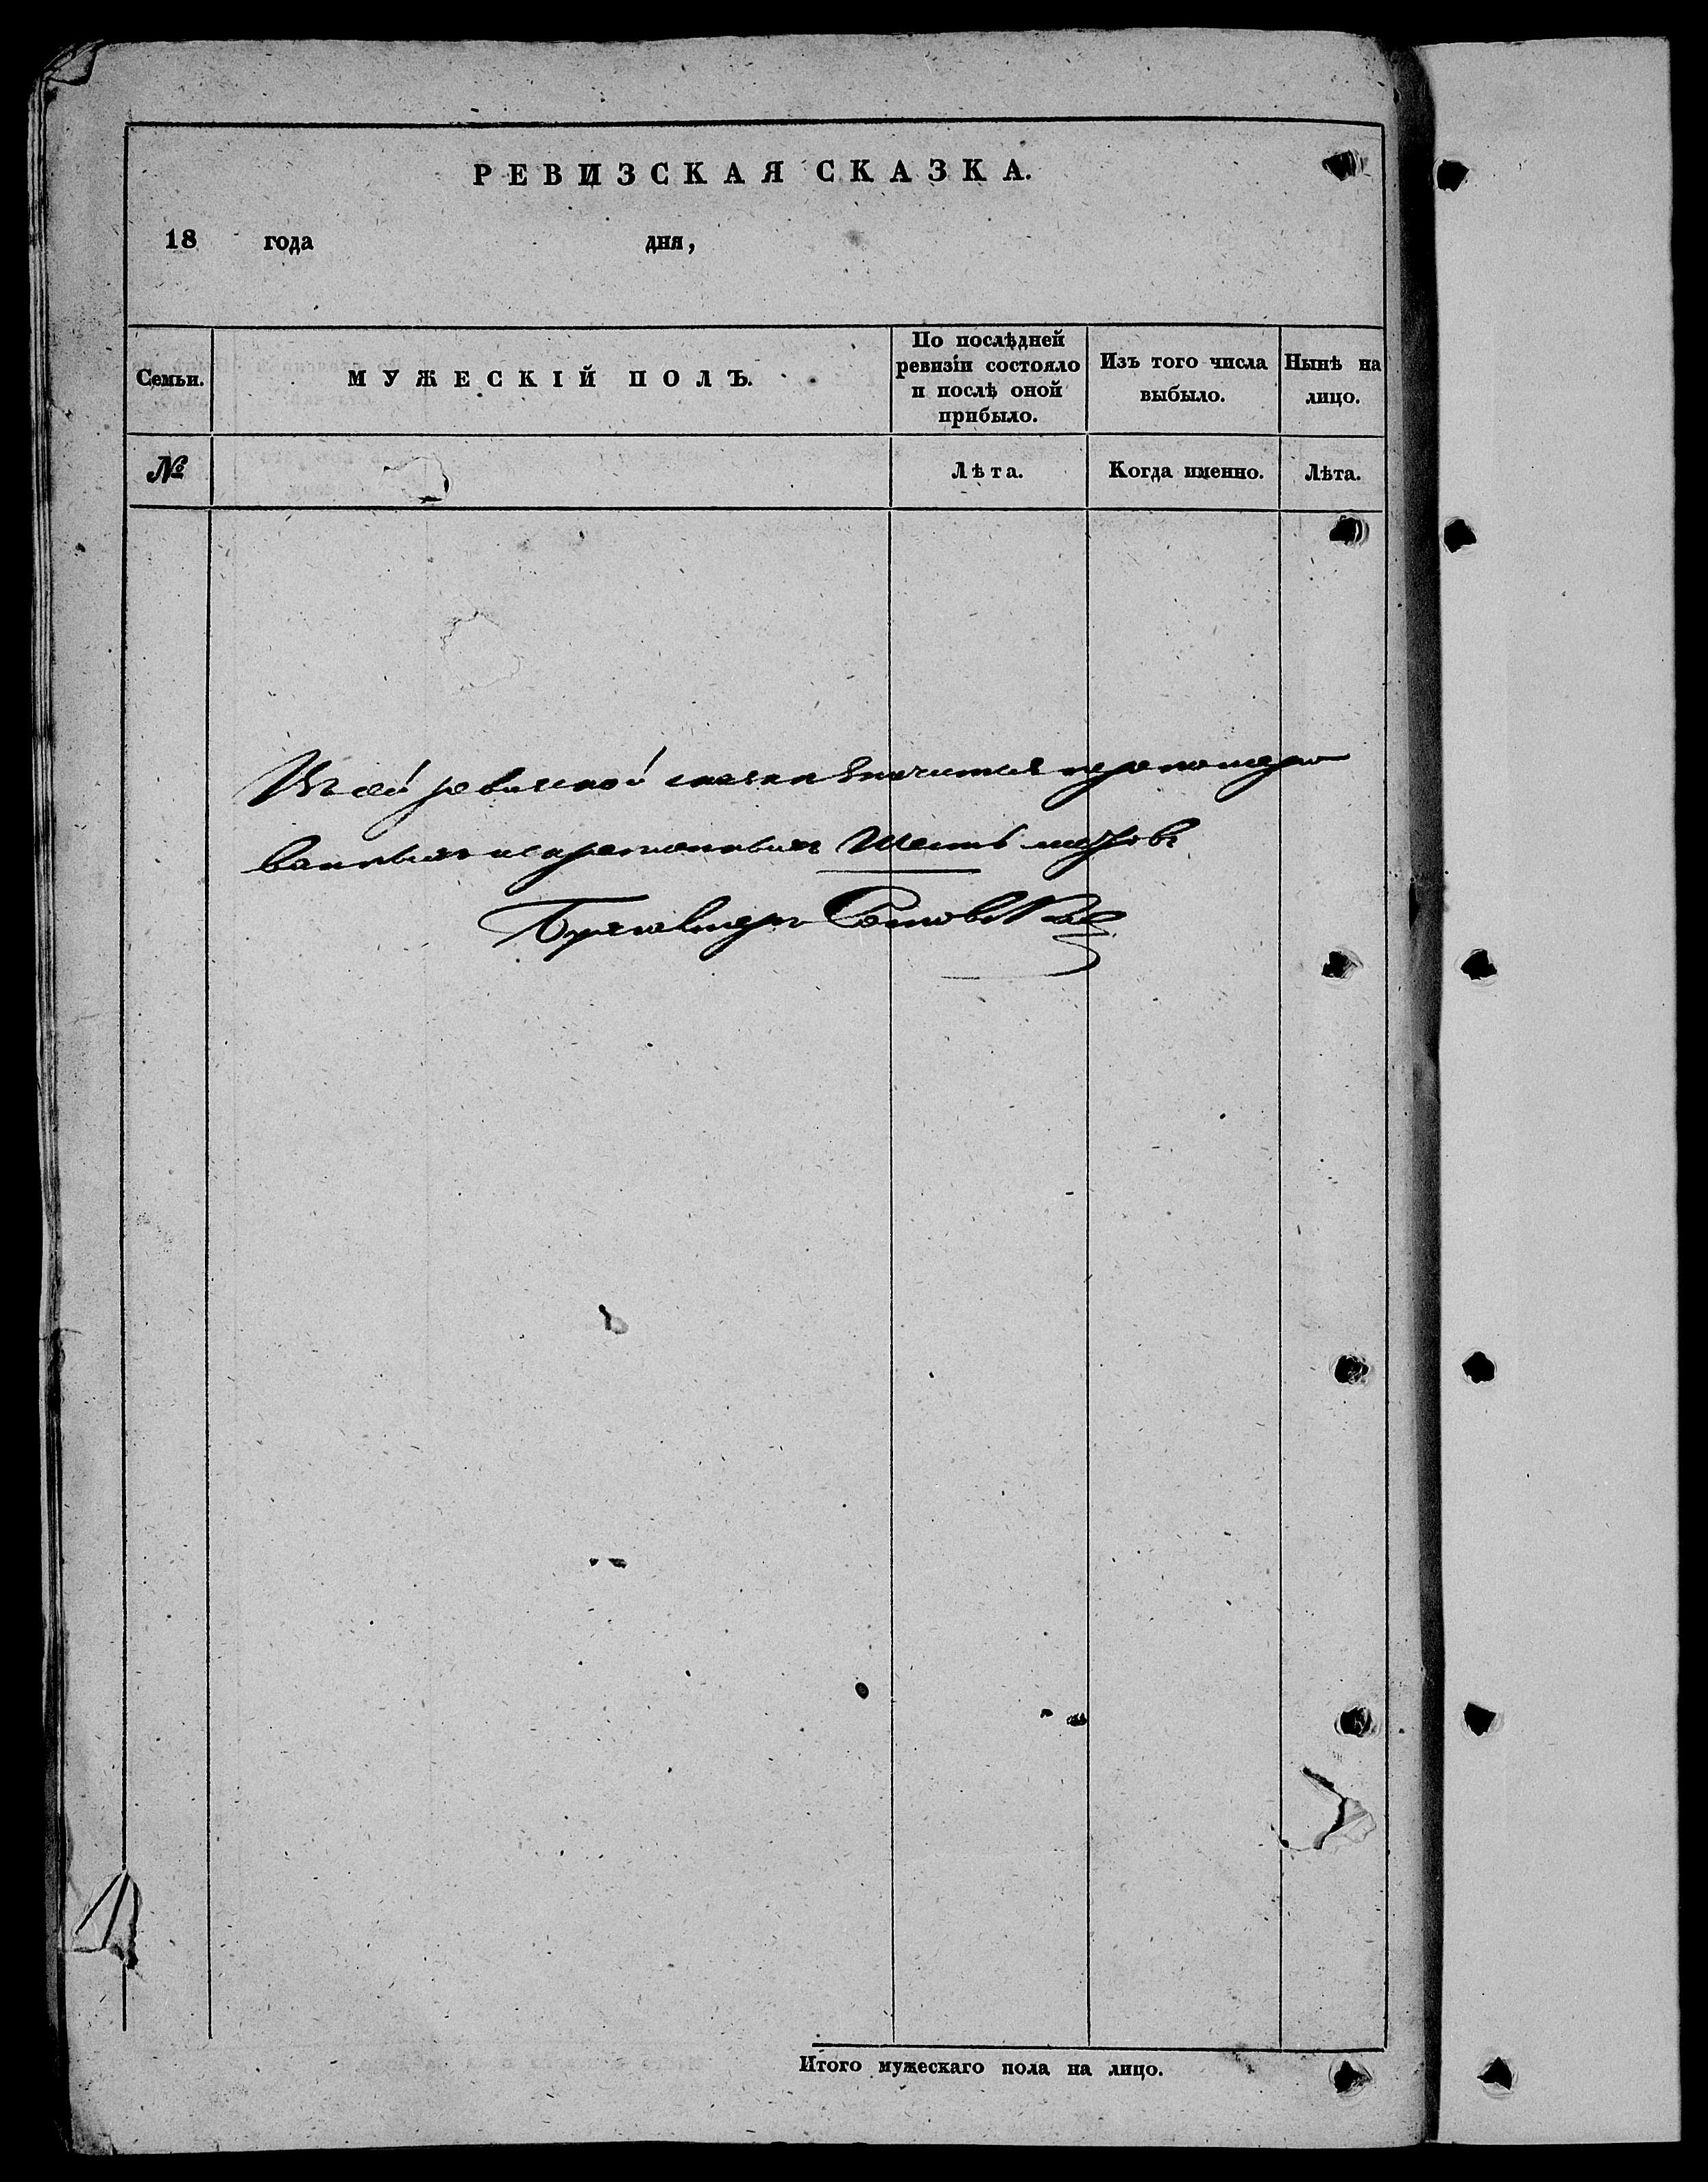 РЕВИЗСКАЯ СКАЗКА.
18 года дня,
Семьи.
МУЖЕСКІЙ ПОЛЪ.
По послѣдней
ревизіи состояло
и послѣ оной
прибыло.
Изъ того числа
выбыло.
Нынѣ на
лицо.
№
Лѣта.
Когда именно.
Лѣта.
Въ сей ревизской сказки значится перенумеро
ванныхъ и скрепленныхъ шесть листовъ
Бухгалтеръ
Итого мужескаго пола на лицо.